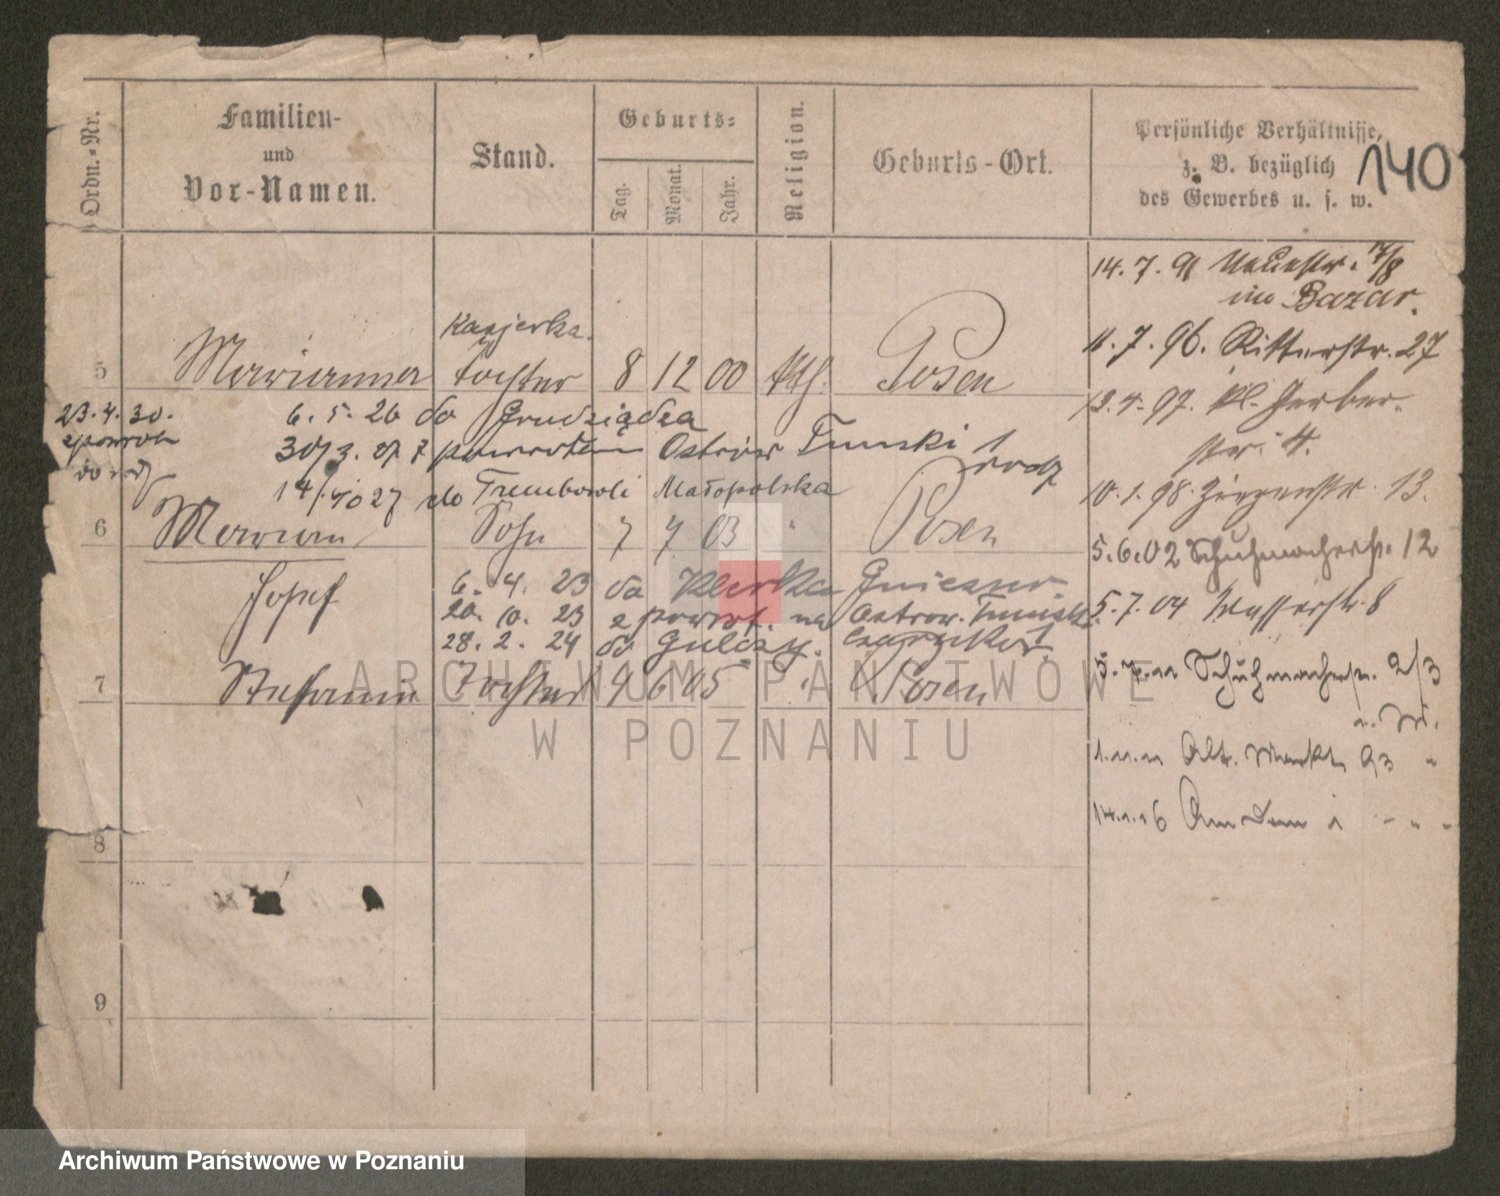 Ordn.-Nr.
Familien-
und
Vor-Namen.
Stand.
Geburts-
Tag.
Monat.
Jahr.
Religion.
Geburts-Ort.
Persönliche Verhältnisse,
z. B. bezüglich
des Gewerbes u. s. w.
140
14. 7. 91 Neuestr. 7/8
im Bazar.
Kasjerka.
5 Marianna Tochter 8 12 00 kth. Posen
11. 7. 96. Ritterstr. 27
13. 4. 97. Kl. Gerber-
str. 4.
23. 4. 30.
z powrotem
6. 5. 26 do Grudziądza
30/3. 27 z powrotem Ostrów Tumski 1
14/10 27 do Trembowli Małopolska
10. 1. 98. Ziegenstr. 13.
6 Marian Sohn 7 7 03 " Posen
Josef
5. 6. 02 Schuhmacherstr. 12
6. 4. 23 do Klecka Gniezno.
20. 10. 23 z powrot. na Ostrow. Tumski
28. 2. 24 do Gulczy. Czarnków.
5. 7. 04 Wasserstr. 8
7 Stefanie Tochter 9 6 05 " Posen
Schuhmacherstr. 2/3
Alt. Markt 93 "
Am Dom 1 - " -
8
9
ARCHIWUM PAŃSTWOWE
W POZNANIU
Archiwum Państwowe w Poznaniu